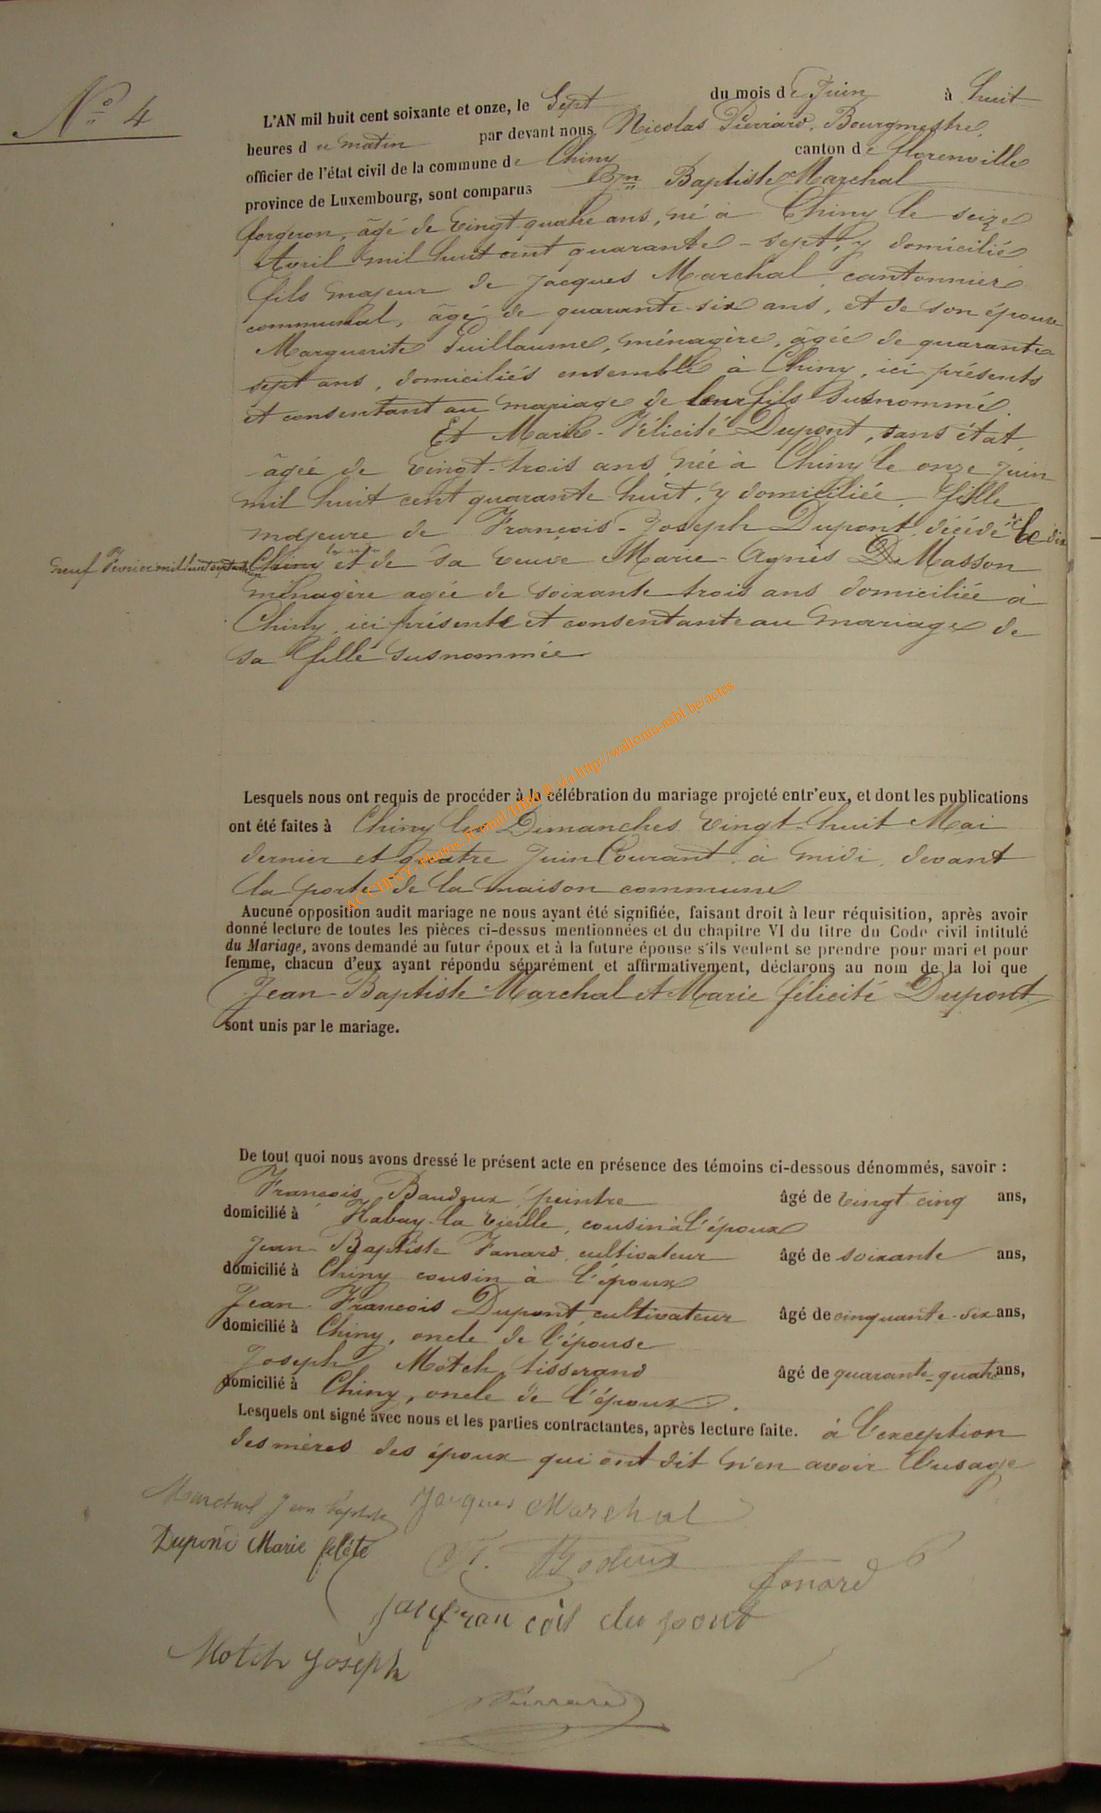 N° 4
L'AN mil huit cent soixante et onze, le Sept du mois de Juin à huit
heures d u matin par devant nous Nicolas Pierrard, Bourgmestre,
officier de l'état civil de la commune de Chiny canton de florenville
province de Luxembourg, sont comparus Jn Baptiste Marchal
forgeron, âgé de vingt-quatre ans, né à Chiny le seize
Avril mil huit cent quarante-sept, y domicilié
fils majeur de Jacques Marchal cantonnier
communal, âgé de quarante-six ans, et de son épouse
Marguerite Guillaume, ménagère, âgée de quarante
sept ans, domiciliés ensemble à Chiny, ici présents
et consentant au mariage de leur fils susnommé.
Et Marie-Félicité Dupont, sans état,
âgée de vingt-trois ans née à Chiny le onze Juin
mil huit cent quarante huit, y domiciliée, fille
majeure de François-Joseph Dupont, décédé le dix
neuf Février mil huit cent Chiny et de sa veuve Marie-Agnès DeMasson
ménagère agée de soixante trois ans domiciliée à
Chiny, ici présente et consentante au mariage de
sa fille susnommée
ACCHINY via http://wallonia-asbl.be/actes
Lesquels nous ont requis de procéder à la célébration du mariage projeté entr'eux, et dont les publications
ont été faites à Chiny les Dimanches vingt-huit Mai
dernier et quatre Juin Courant à midi, devant
la porte de la maison commune
Aucune opposition audit mariage ne nous ayant été signifiée, faisant droit à leur réquisition, après avoir
donné lecture de toutes les pièces ci-dessus mentionnées et du chapitre VI du titre du Code civil intitulé
du Mariage, avons demandé au futur époux et à la future épouse s'ils veulent se prendre pour mari et pour
femme, chacun d'eux ayant répondu séparément et affirmativement, déclarons au nom de la loi que
Jean-Baptiste Marchal et Marie félicité Dupont
sont unis par le mariage.
De tout quoi nous avons dressé le présent acte en présence des témoins ci-dessous dénommés, savoir :
François Baudoux, peintre âgé de vingt cinq ans,
domicilié à Habay-la vieille, cousin à l'époux
Jean-Baptiste Fanard, cultivateur âgé de soixante ans,
domicilié à Chiny cousin à l'époux
Jean-François Dupont, cultivateur âgé de cinquante-six ans,
domicilié à Chiny, oncle de l'épouse
Joseph Motch, tisserand âgé de quarante-quatre ans,
domicilié à Chiny, oncle de l'époux.
Lesquels ont signé avec nous et les parties contractantes, après lecture faite. à l'exception
des mères des époux qui ont dit n'en avoir l'usage
Marchal Jean Baptiste Jacques Marchal
Dupont Marie felété F. Bodeux
fanard
jean françois du pont
Motch Joseph
Pierrard